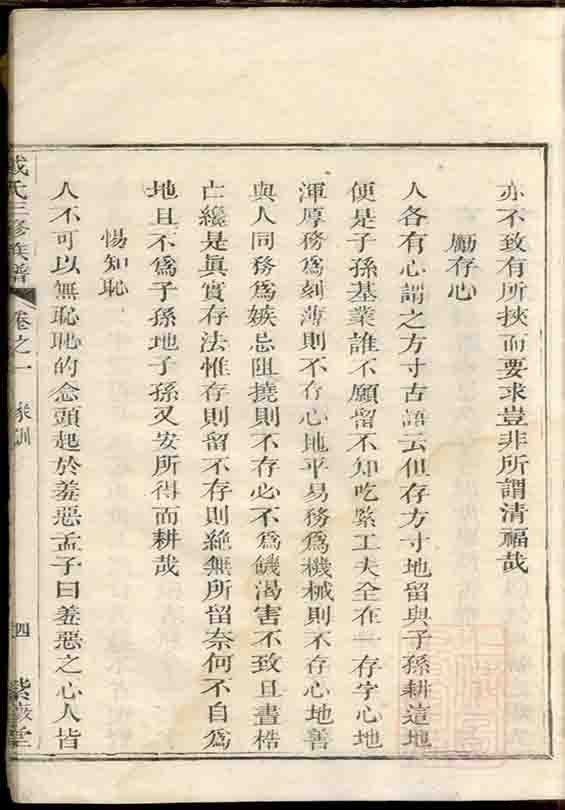 亦不致有所挾而要求豈非所謂清福哉
勵存心
人各有心謂之方寸古語云但存方寸地留與子孫耕這地
便是子孫基業誰不願留不知吃緊工夫全在一存字心地
渾厚務為刻薄則不存心地平易務為機械則不存心地善
與人同務為嫉忌阻撓則不存必不為饑渴害不致旦晝梏
亡纔是眞實存法惟存則留不存則絶無所留奈何不自為
地且不為子孫地子孫又安所得而耕哉
惕知恥
人不可以無恥恥的念頭起於羞惡孟子曰羞惡之心人皆
氏三修族譜
卷之一
家訓
四
紫
堂